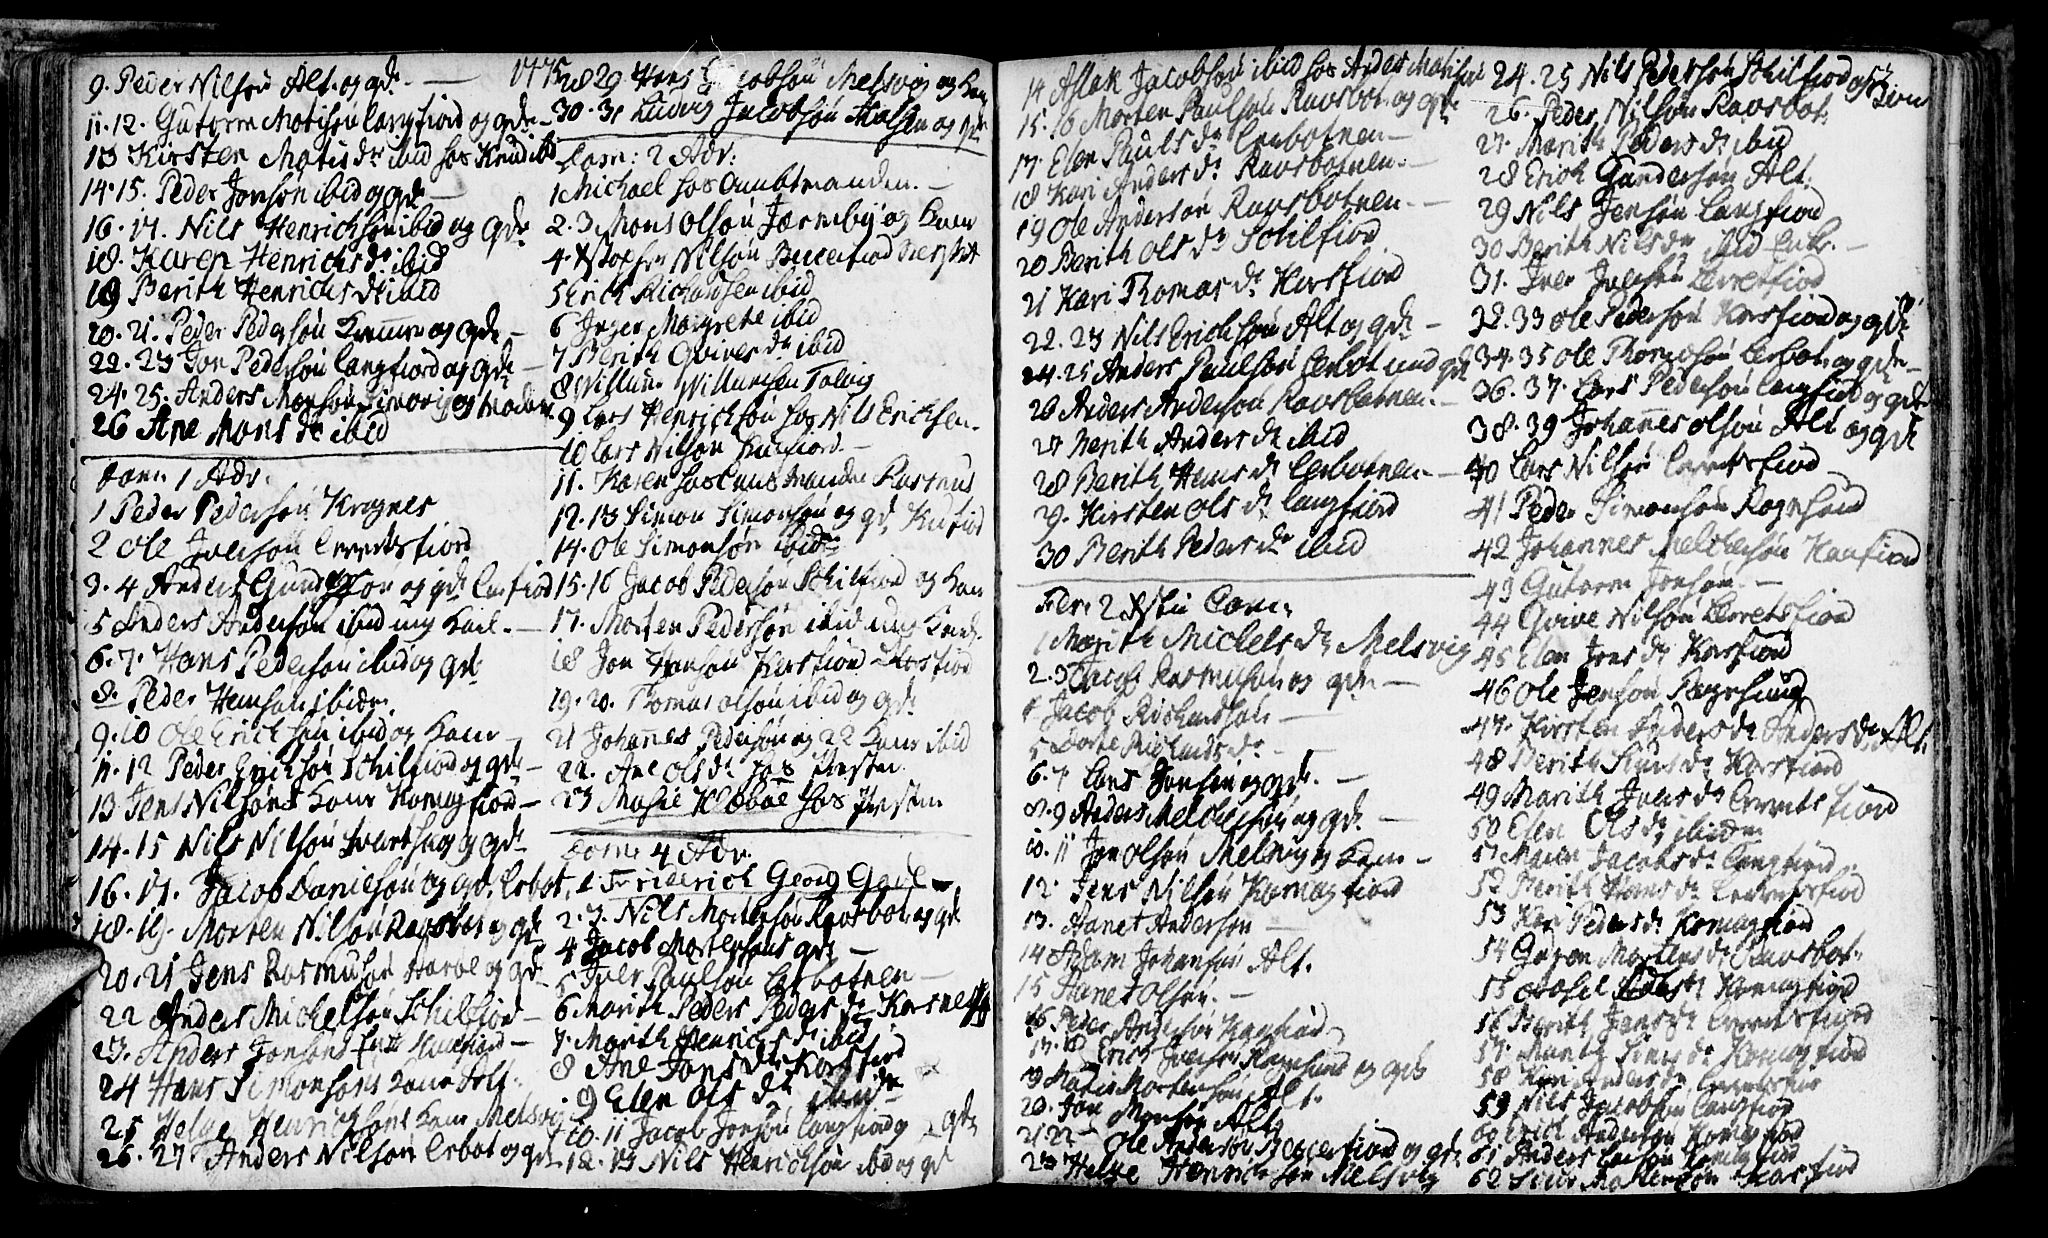 9. Peder Nilsøn Alt. og gde. —
11. 12. Gutorm Matisøn Langfiord og gde —
13 Kirsten Matis dr ibid hos Knud ibid
14. 15. Peder Jonsøn ibid og gde —
16. 17. Nils Henrichsøn ibid og gde
18. Karen Henrichs dr ibid
19 Berith Henrichs dr ibid
20. 21. Peder Pedersøn og gde —
22. 23 Jon Pedersøn Langfiord og gde —
24. 25. Anders Monsøn og moder
26 Ane Mons dr ibid
Dom: 1 Adv.
1 Peder Pedersøn Kragnes
2 Ole Iversøn Lerretsfiord
3. 4 Anders og gde
5 Anders Andersøn ibid
6. 7. Hans Pedersøn ibid og gde
8. Peder Hansøn ibidm.
9. 10 Ole Erichsøn ibid og Kone —
11. 12 Peder Erichsøn Schilfiord og gde —
13 Jens Nilsøns Kone Komagfiord —
14. 15 Nils Nilsøn og gde
16. 17. Jacob Danielsøn og gde. Lerbot.
18. 19. Morten Nilsøn Ravsbot. og gde
20. 21 Jens Rasmusøn og gde
22 Anders Michelsøn Schilfiord —
23. Anders Jonsøns —
24 Hans Simonsøns Kone
25 Helge Henrichsøns Kone Melsvig
26. 27. Anders Nilsøn Lerbot og gde
1775
28 29 Hans Jacobsøn Melsvig og Kone
30. 31 Ludvig Jacobsøn og gde
Dom: 2 Adv:
1 Michael hos Amtmanden. —
2. 3 Mons Olsøn og Kone
4. Xstopher Nilsøn
5 Erich Richardsen ibid
6 Inger Margrete ibid
7 Berith Qvives dr ibid
8 Willum Willumsen Talvig
9 Lars Henrichsøn hos Nils Erichsen.
10 Lars Nilsøn —
11. Karen hos Rasmus
12. 13 Simon Simonsøn og gde
14. Ole Simonsøn ibidm
15. 16 Jacob Pedersøn Schilfiord og Kone
17. Morten Pedersøn ibid
18 Jon Hansøn
19. 20. Thomas Olsøn ibid og gde
21 Johannes Pedersøn og 22 Kone ibid
22. Ane Ols dr hos Præsten.
23 Præsten
Dom: 4 Adv.
1 Friderich Georg
2. 3. Nils Mortensøn Ravsbot. og gde
4 Jacob Mortensøns gde —
5 Iver Paulsøn Lerbotnen —
6 Marith Peders Peders dr Korsnes
7. Marith Henrichs dr ibid
8 Ane Jons dr Korsfiord
9 Elen Ols dr ibidm
10. 11 Jacob Jonsøn Langfiord og gde
12. 13 Nils Henrichsøn ibid og gde
14 Aslak Jacobsøn ibid hos Anders Matisøn
15. 16 Morten Paulsøn Ravsbot. og gde
17. Elen Pauls dr Lerbotnen —
18 Kari Anders dr Ravsbotnen. —
19 Ole Andersøn Ravsbotnen. —
20 Berith Ols dr Schilfiord
21 Kari Thomas dr Korsfiord
22. 23 Nils Erichsøn Alt og gde —
24. 25 Anders Paulsøn Lerbot und gde
26 Anders Andersøn Ravsbotnen. —
27 Berith Anders dr ibid
28 Berith Hans dr Lerbotnen —
29. Kirsten Ols dr Langfiord
30 Berith Peders dr ibid
Fer: 2 Xsti
1 Marith Michels dr Melsvig
2. 3 Jacob Rasmusøn og gde —
4 Jacob Richardsøn —
5 Dorte Richards dr —
6. 7 Lars Jonsøn og gde. —
8. 9 Anders Melchersøn og gde. —
10. 11 Jon Olsøn Melsvig og Kone —
12. Jens Nilsøn Komagfiord
13. Hanet Andersøn —
14 Adam Johansøn Alt.
15 Hanet Olsøn. —
16 Peder Andersøn Kaafiord.
17. 18 Erich Iversøn Rognsund og gde
19 Matis Mortensøn Alt.
20. Jon Monsøn Alt
21 22 Ole Andersøn og gde
23 Helge Henrichsøn Melsvig
24. 25 Nils Pedersøn Schilfiord
26. Peder Nilsøn Ravsbot.
27. Marith Peders dr ibid
28 Erich Gundersøn Alt.
29 Nils Jensøn Langfiord
30 Berith Nils dr ibid Enke. —
31. Iver Iversøn Lerretsfiord
32. 33 Ole Pedersøn Korsfiord og gde
34. 35 Ole Thomesøn Lerbot. og gde —
36. 37. Lars Pedersøn Langfiord og gde
38. 39 Johannes Olsøn Alt og gde
40 Lars Nilsøn Lerretsfiord
41 Peder Simonsøn Rognsund
42 Johannes Melchersøn Kaafiord
43 Gutorm Jonsøn. —
44 Qvive Nilsøn Lerretsfiord
45 Elen Jons dr Korsfiord
46 Ole Jensøn Rognsund
47. Kirsten Anders dr Anders dr Alt.
48 Berith dr Korsfiord
49 Marith Ivers dr Lerretsfiord
50 Elen Ols dr ibidm
51 Maren Jacobs dr Langfiord
52 Berith Hans dr Lerretsfiord
53 Kari Peders dr Komagfiord
54 Guron Mortens dr Ravsbot.
55 Komagfiord
56 Berith Jens dr Lerretsfiord
57. Marith dr Komagfiord
58 Kari Anders dr
59 Nils Jacobsøn Langfiord
60 Erich Andersøn Komagfiord
61 Anders Komagfiord
62 Korsfiord